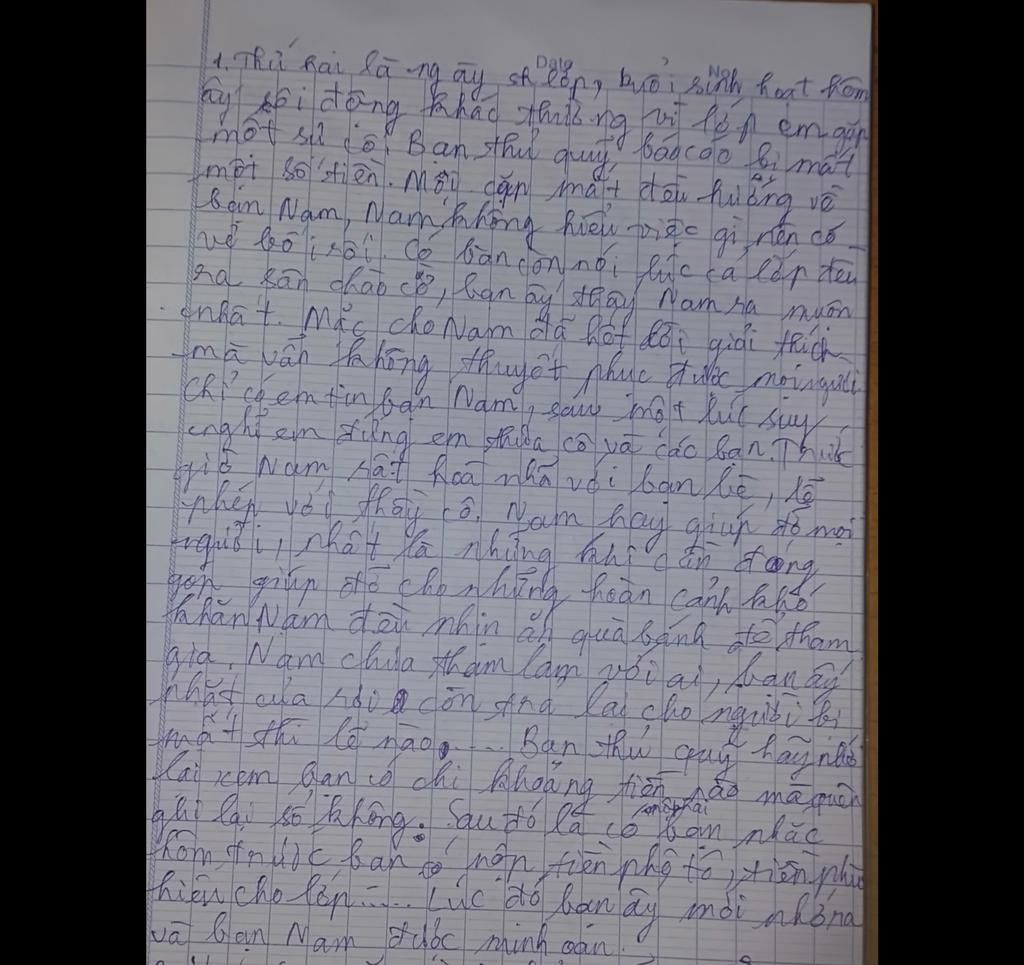 Date No
1. Thứ hai là ngày sh lớp, buổi sinh hoạt hôm
ấy sôi động khác thường vì lớp em gặp
một sự cố. Bạn thủ quỹ báo cáo bị mất
một số tiền. Mọi cặp mắt đều hướng về
bạn Nam, Nam không hiểu việc gì nên có
vẻ bối rối. Có bạn còn nói lúc cả lớp đều
ra sân chào cờ, bạn ấy thấy Nam ra muộn
nhất. Mặc cho Nam đã hết lời giải thích
mà vẫn không thuyết phục được mọi người.
Chỉ có em tin bạn Nam, sau một lúc suy
nghĩ em đứng em thưa cô và các bạn. Trước
giờ Nam rất hoà nhã với bạn bè, lễ
phép với thầy cô. Nam hay giúp đỡ mọi
người, nhất là những khi cần đóng
góp giúp đỡ cho những hoàn cảnh khó
khăn Nam đều nhịn ăn quà bánh để tham
gia. Nam chưa tham lam với ai, bạn ấy
nhặt của rơi còn trả lại cho người bị
mất thì lẽ nào..... Bạn thủ quỹ hãy nhớ
lại xem bạn có chi khoảng tiền nào mà quên
ghi lại số không. Sau đó là có bạn nhắc
hôm trước bạn có nộp tiền phô tô, tiền phù
hiệu cho lớp..... Lúc đó bạn ấy mới nhớ ra
và bạn Nam được minh oan.